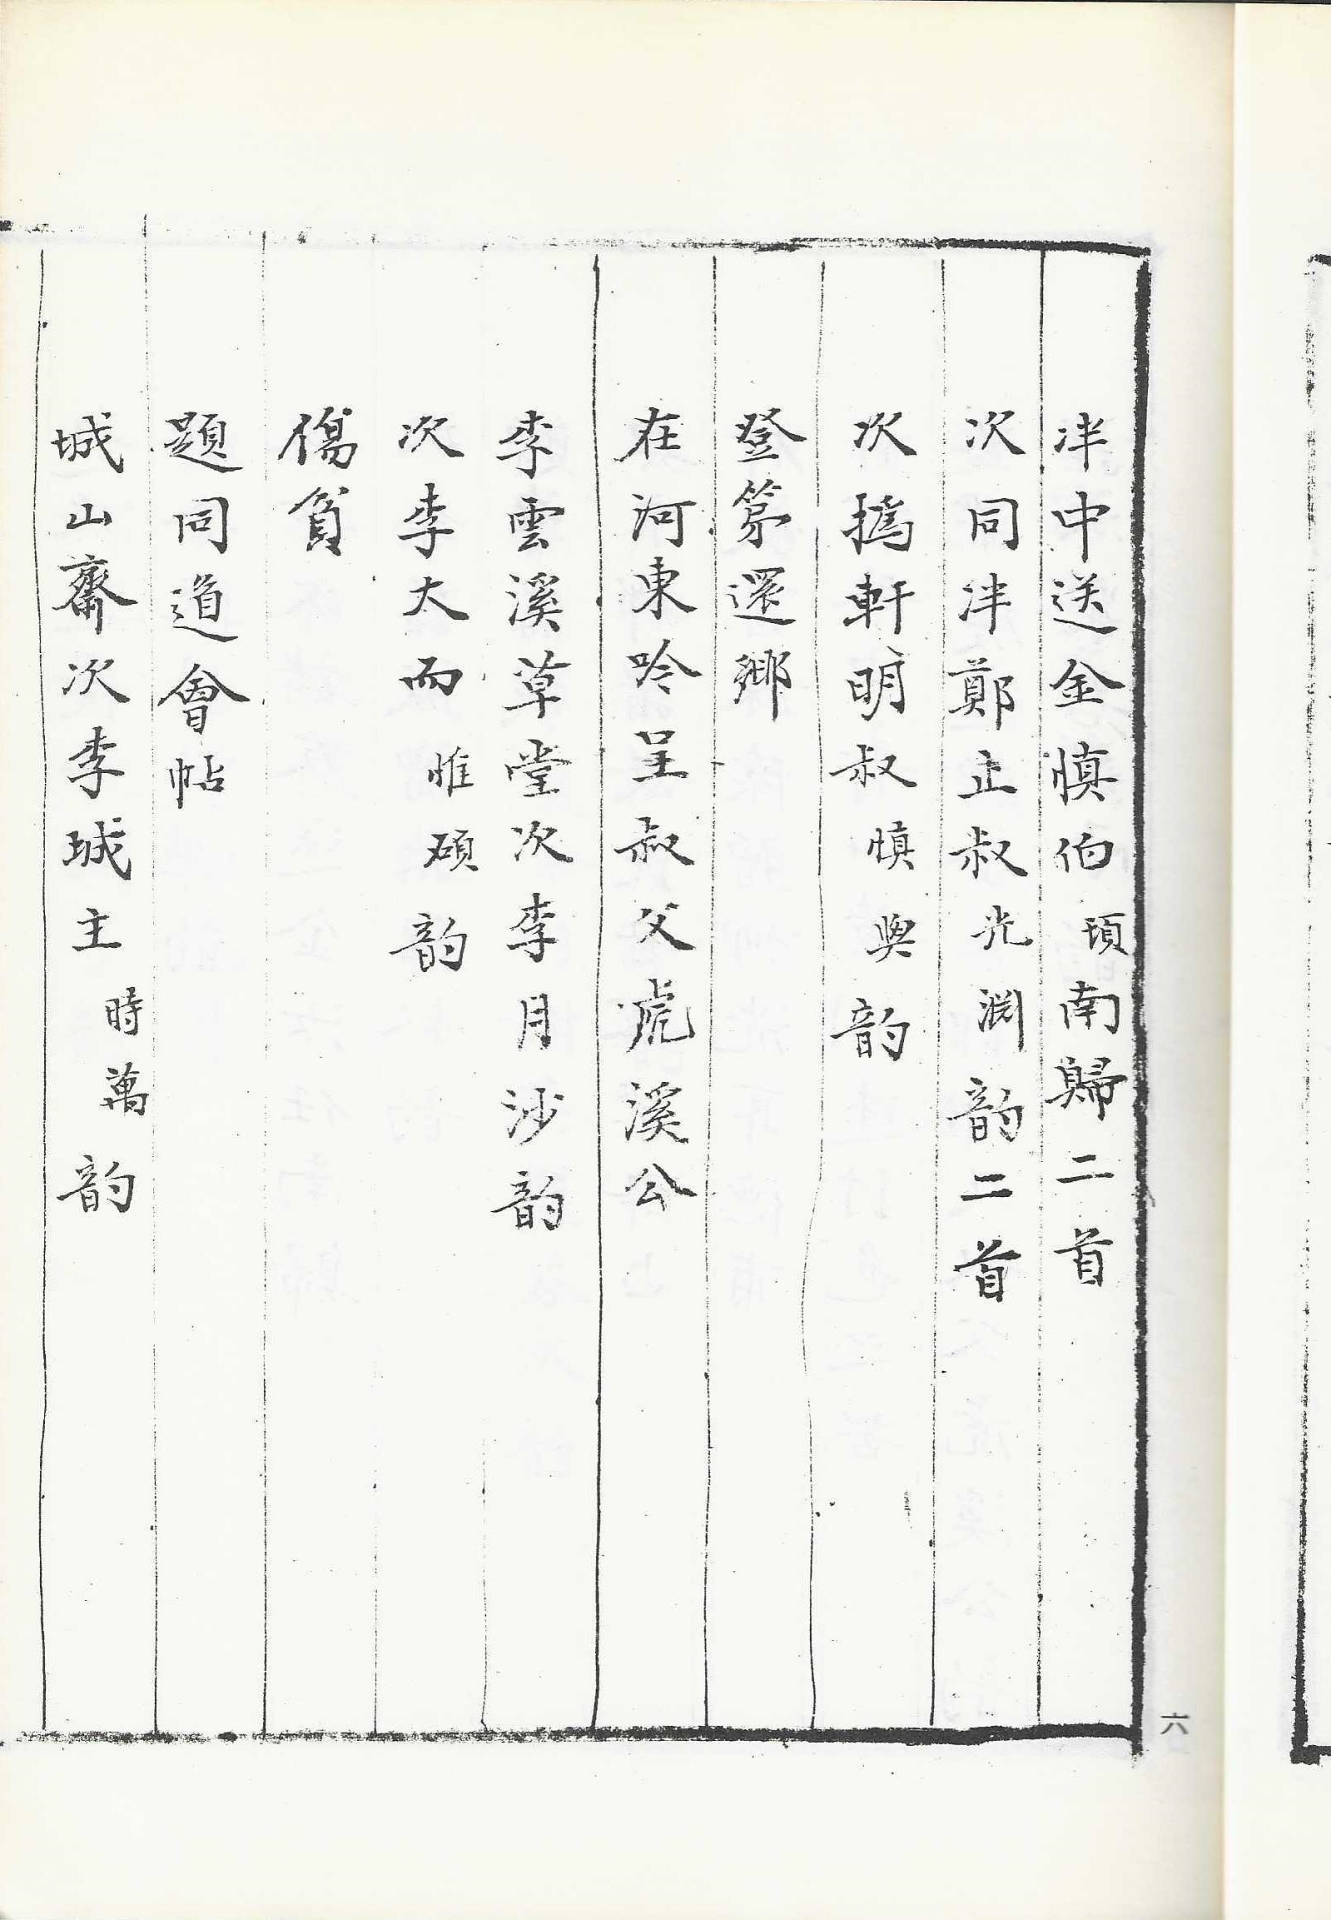 泮中送金慎伯頊南歸二首
次同泮鄭正叔光淵韵二首
次撝軒明叔慎與韵
登第還鄉
在河東吟呈叔父虎溪公
李雲溪草堂次李月沙韵
次李大而惟碩韵
傷貧
題同道會帖
城山齋次李城主時萬韵
六